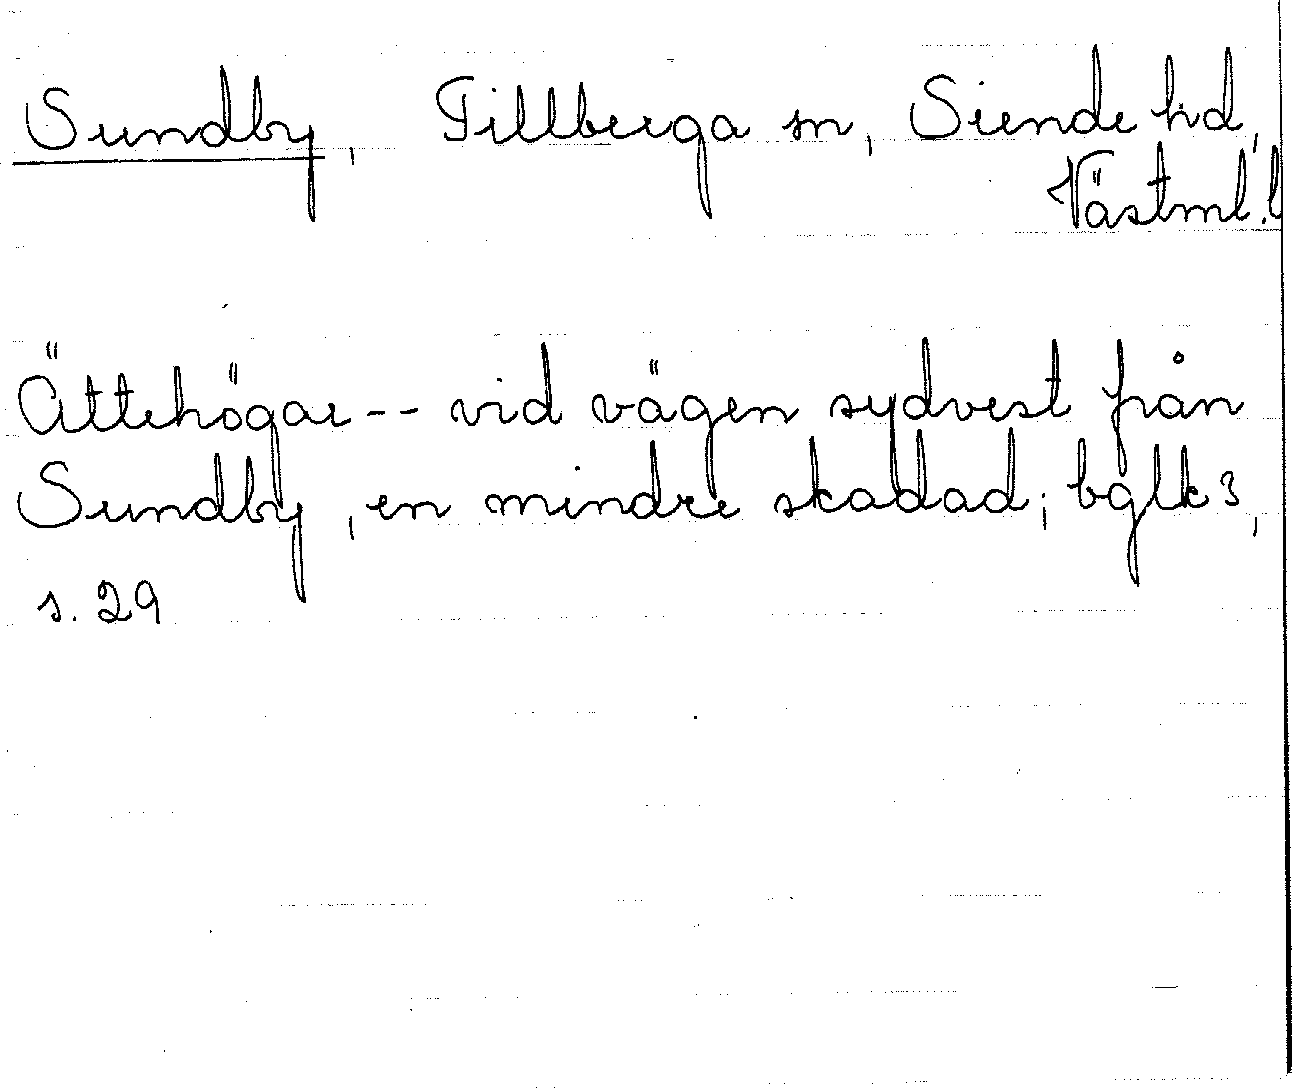 Sundby, Tillberga sn, Siende hd,
Västml. l
Ättehögar -- vid vägen sydvest från
Sundby, en mindre skadad; bglk 3,
s. 29